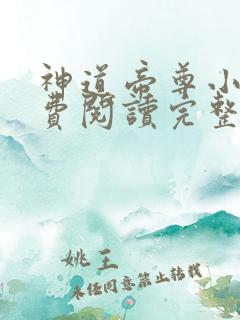 神道帝尊小
費閱讀完整
姚王
未经同意禁止转载